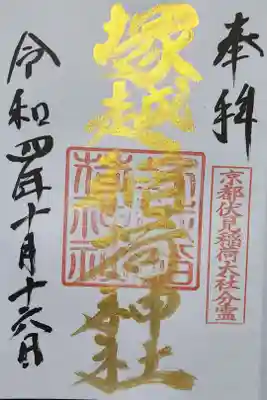 奉拝
京都伏見稲荷大社分霊
塚越稲荷神社
令和四年十月十六日